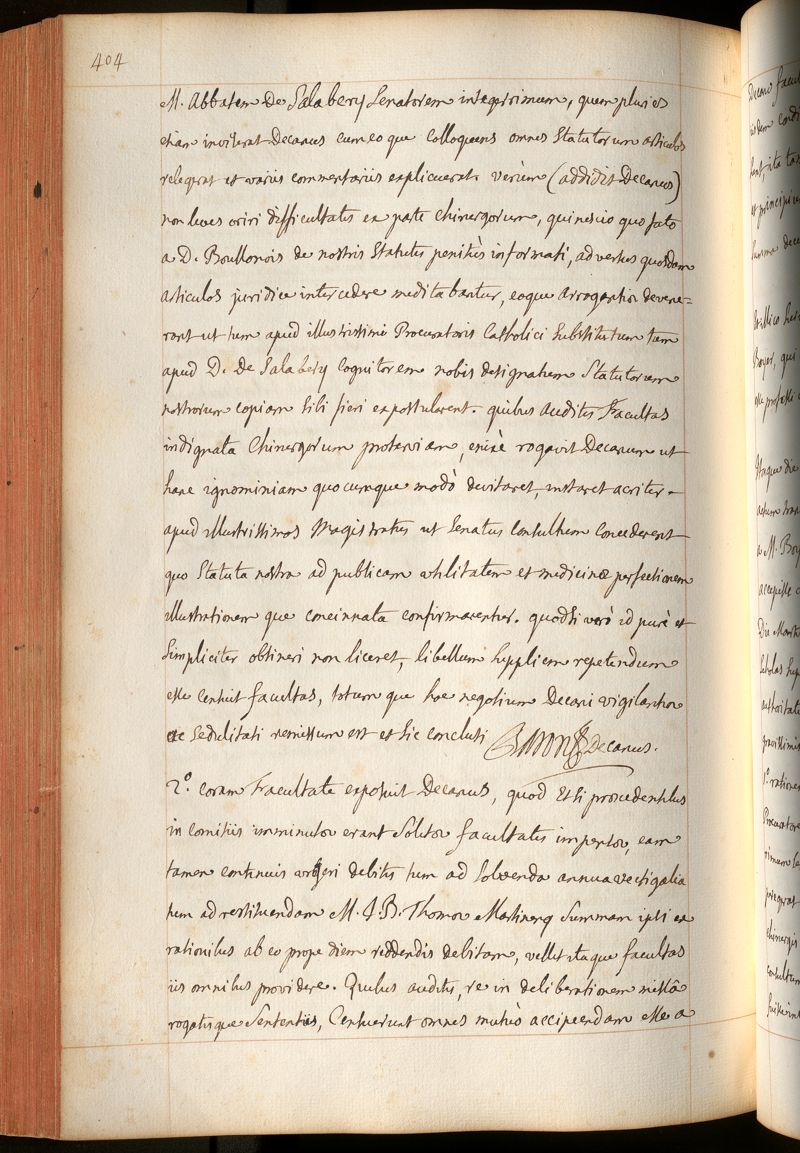 404
M. Abbatem De Salabery Senatorem integerrimum, quem pluries
etiam inviserat Decanus cum eo que colloquens omnes Statutorum articulos
relegerat et variis commentariis explicuerat. verùm (addidit Decanus)
non leves oriri difficultates ex parte Chirurgorum, qui nescio quo fato
a D. Boullonois de nostris Statutis penitùs informati, adversus quosdam
articulos juridice intercedere meditabantur, eoque arrogantiæ devene=
rant ut tum apud illustrissimi Procuratoris Catholici Substitutum tum
apud D. De Salabery Cognitorem nobis designatum Statutorum
nostrorum copiam sibi fieri expostularent. quibus auditis Facultas
indignata Chirurgorum proterviam, enixè rogavit Decanum ut
hanc ignominiam quocumque modò devitaret, instaret acriter
apud illustrissimos Magistratus ut Senatus Consultum Concederent
quo Statuta nostra ad publicam utilitatem et medicinæ perfectionem
illustrationem que concinnata confirmarentur. quodsi verò id purè et
Simpliciter obtineri non liceret, libellum supplicem repetendum
esse censuit facultas, totum que hoc negotium Decani vigilantiæ
ac Sedulitati remissum est et sic conclusi Decanus.
2.° Coram Facultate exposuit Decanus, quod Etsi procedentibus
in comitiis imminutæ erant Solitæ facultatis impensæ, eam
tamen continuis urgeri debitis tum ad Solvenda annua vectigalia
tum ad restituendam M. J. B. Thomæ Martinenq Summam ipsi ex
rationibus ab eo prope diem reddendis debitam, vellet itaque facultas
iis omnibus providere. Quibus auditis, re in deliberationem missâ
rogatisque Sententiis, Censuerunt omnes mutuò accipiendam esse a